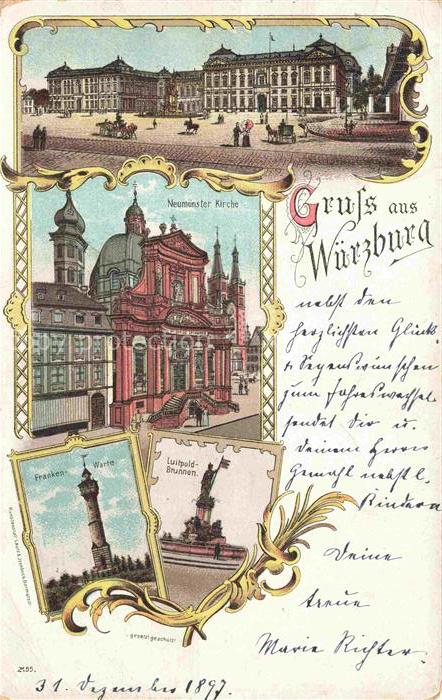 Neumünster Kirche
Gruss aus
Würzburg
nebst den
herzlichsten Glück-
& Segenswünschen
zum Jahreswechsel
sendet Dir u.
Deinem Herrn
Gemahl nebst l.
Kindern
Deine
treue
Marie Richter.
Franken-Warte
Luitpold-
Brunnen.
gesetzl. geschützt
2155.
31. Dezember 1897